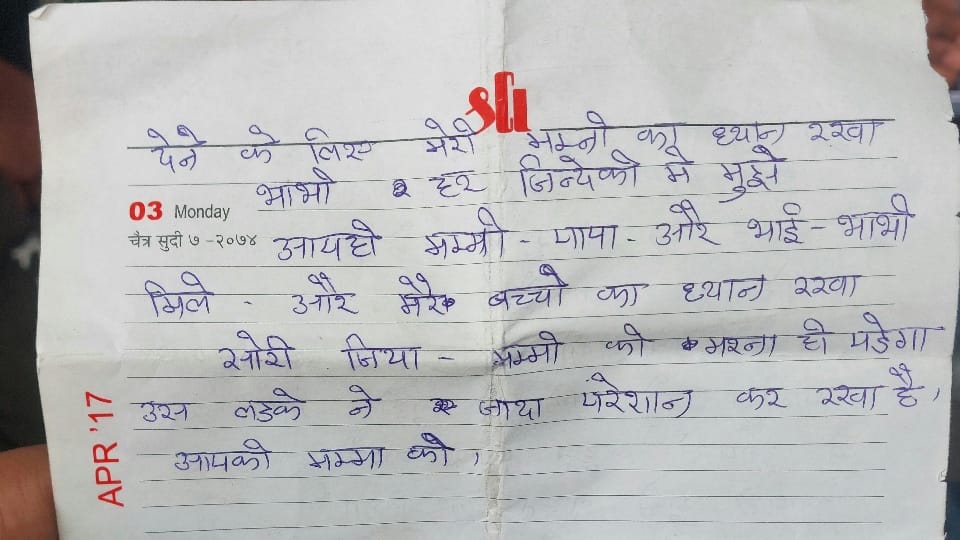 SCI
देने के लिए मेरी मम्मी का ध्यान रखा
भाभी हर जिन्देकी मे मुझे
03 Monday
चैत्र सुदी ७ -२०७४
आपही मम्मी - पापा - और भाई - भाभी
मिले - और मेरे बच्चो का ध्यान रखा
सोरी जिया - मम्मी को मरना ही पडेगा
APR '17
उस लडके ने जादा परेशान कर रखा है,
आपकी मम्मा को,